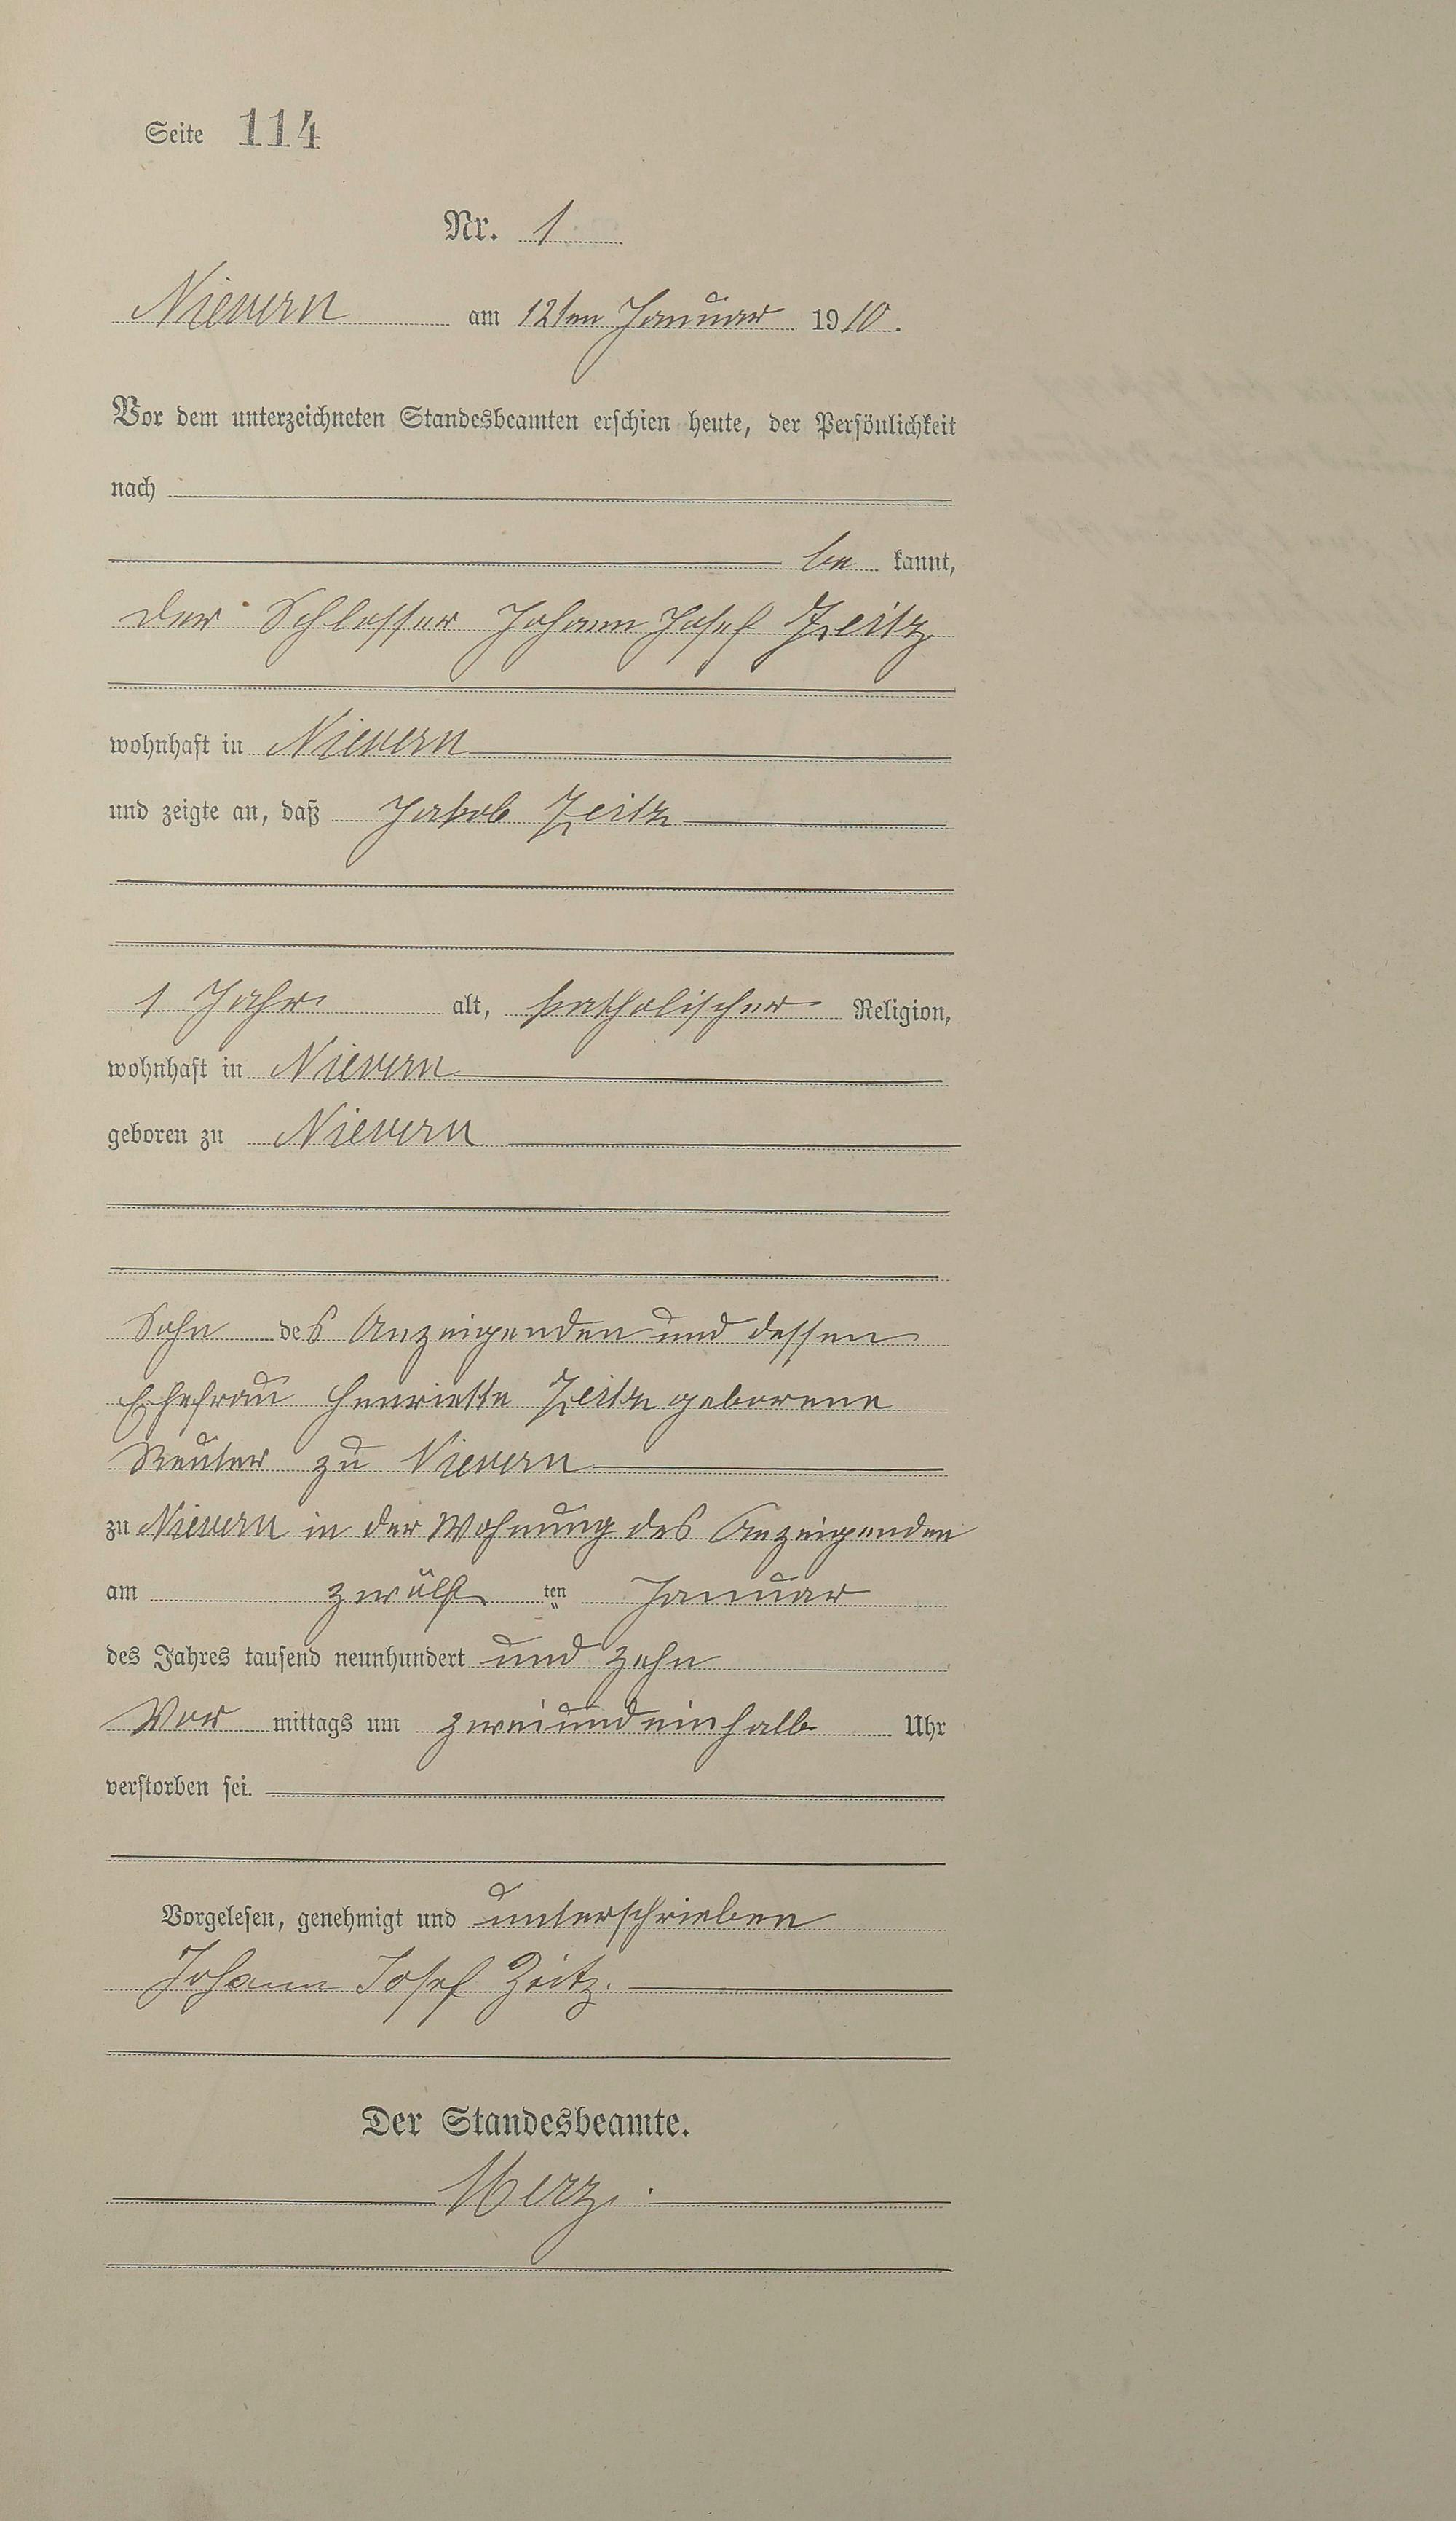 Seite 114
Nr. 1
Nievern am 12ten Januar 1910.
Vor dem unterzeichneten Standesbeamten erschien heute, der Persönlichkeit
nach
be kannt,
der Schlosser Johann Josef Zeitz
wohnhaft in Nievern
und zeigte an, daß Jakob Zeitz
1 Jahr alt, katholischer Religion,
wohnhaft in Nievern
geboren zu Nievern
Sohn des Anzeigenden und dessen
Ehefrau Henriette Zeitz geborene
Reuter zu Nievern
zu Nievern in der Wohnung des Anzeigenden
am zwölf ten Januar
des Jahres tausend neunhundert und zehn
Vor mittags um zweiundeinhalb Uhr
verstorben sei.
Vorgelesen, genehmigt und unterschrieben
Johann Josef Zeitz.
Der Standesbeamte.
Merz.